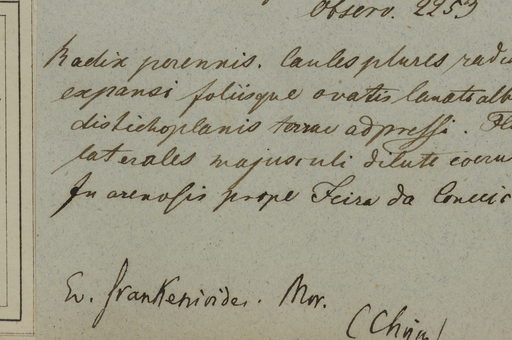 Observ. 2253
Radix perennis. Caules plures radi
expansi foliisque ovatis lanato alb
distichoplanis terrae adpressi. Fl
laterales majusculi dilute coeru
In arenosis prope Feira da Conceic
Ev. frankenioides. Mor.